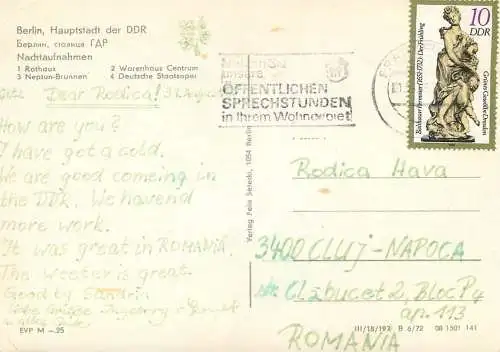 Berlin, Hauptstadt der DDR
Берлин, столица ГДР
Nachtaufnahmen
1 Rathaus 2 Warenhaus Centrum
3 Neptun-Brunnen 4 Deutsche Staatsoper
Dear Rodica!
How are you?
I have got a cold.
We are good comeing in
the DDR. We havend
more work.
It was great in ROMANIA.
The weeter is great.
Good by
liebe Grüße Ingeborg
EVP M –.25
Verlag Felix Setecki, 1054 Berlin
III/18/197 B 6/72 08 1501 141
ÖFFENTLICHEN
SPRECHSTUNDEN
in Ihrem Wohngebiet
10
DDR
Balthasar Permoser (1651-1732) Der Frühling
Grünes Gewölbe Dresden
Rodica Hava
3400 CLUJ-NAPOCA
str. Clăbucet 2, Bloc P4
ap. 113
ROMANIA